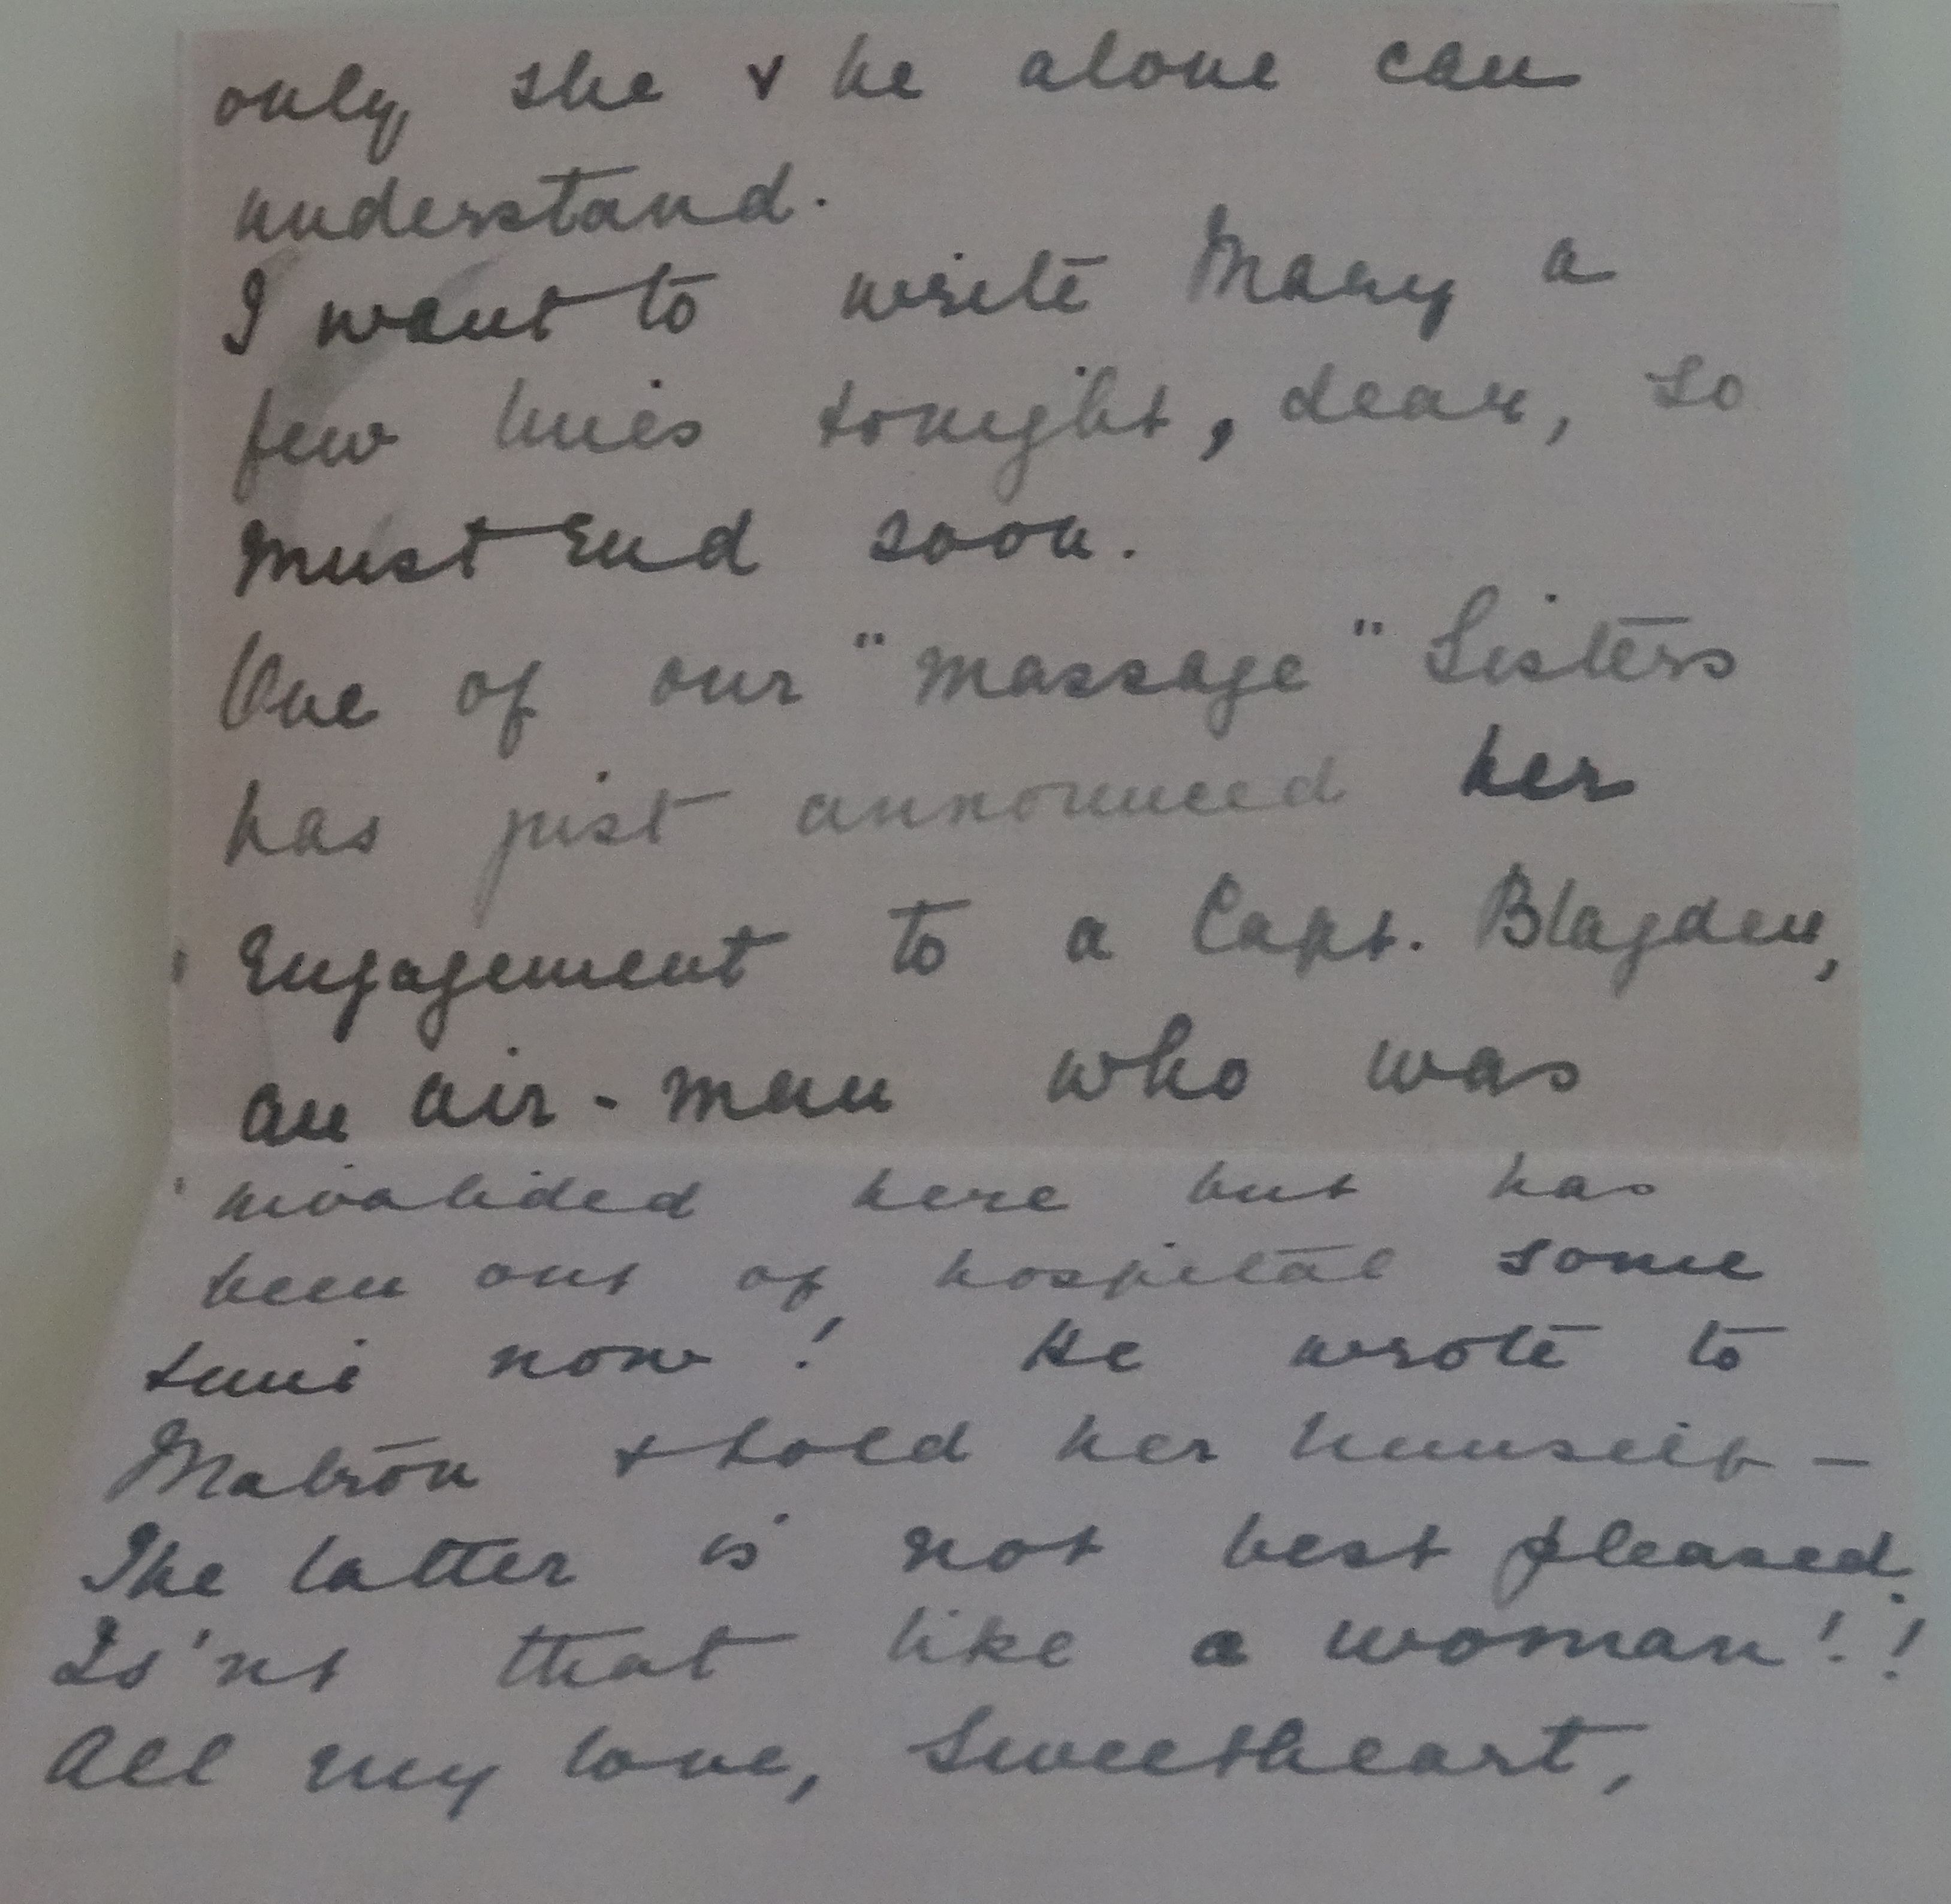 only she & he alone can
understand.
I want to write Mary a
few lines tonight, dear, so
must end soon.
One of our "massage" Sisters
has just announced her
Engagement to a Capt. Blagden,
an air-man who was
invalided here but has
been out of hospital some
time now! He wrote to
Matron & told her himself –
The latter is not best pleased.
Is'nt that like a woman!!
All my love, Sweetheart,